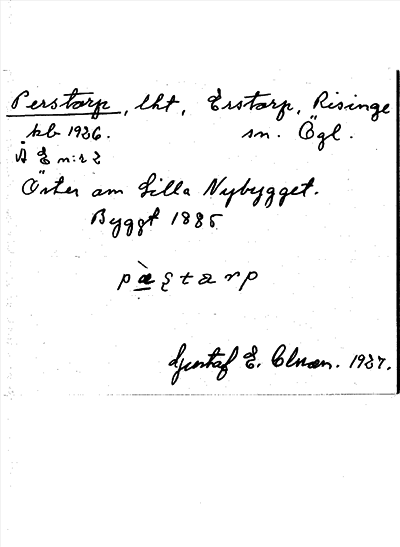 Perstorp, lht, Erstorp, Risinge
kb 1936. sn. Ögl.
Å E n:r 2
Öster om Lilla Nybygget.
Byggt 1885
Gustaf E. 1937.